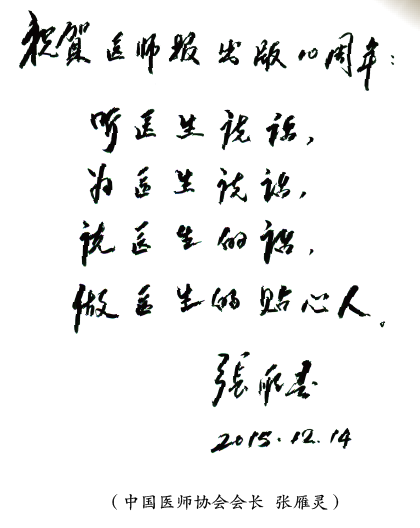 祝贺医师报出版10周年：
听医生说话，
为医生说话，
说医生的话，
做医生的贴心人。
張雁灵
2015.12.14
（中国医师协会会长 张雁灵）